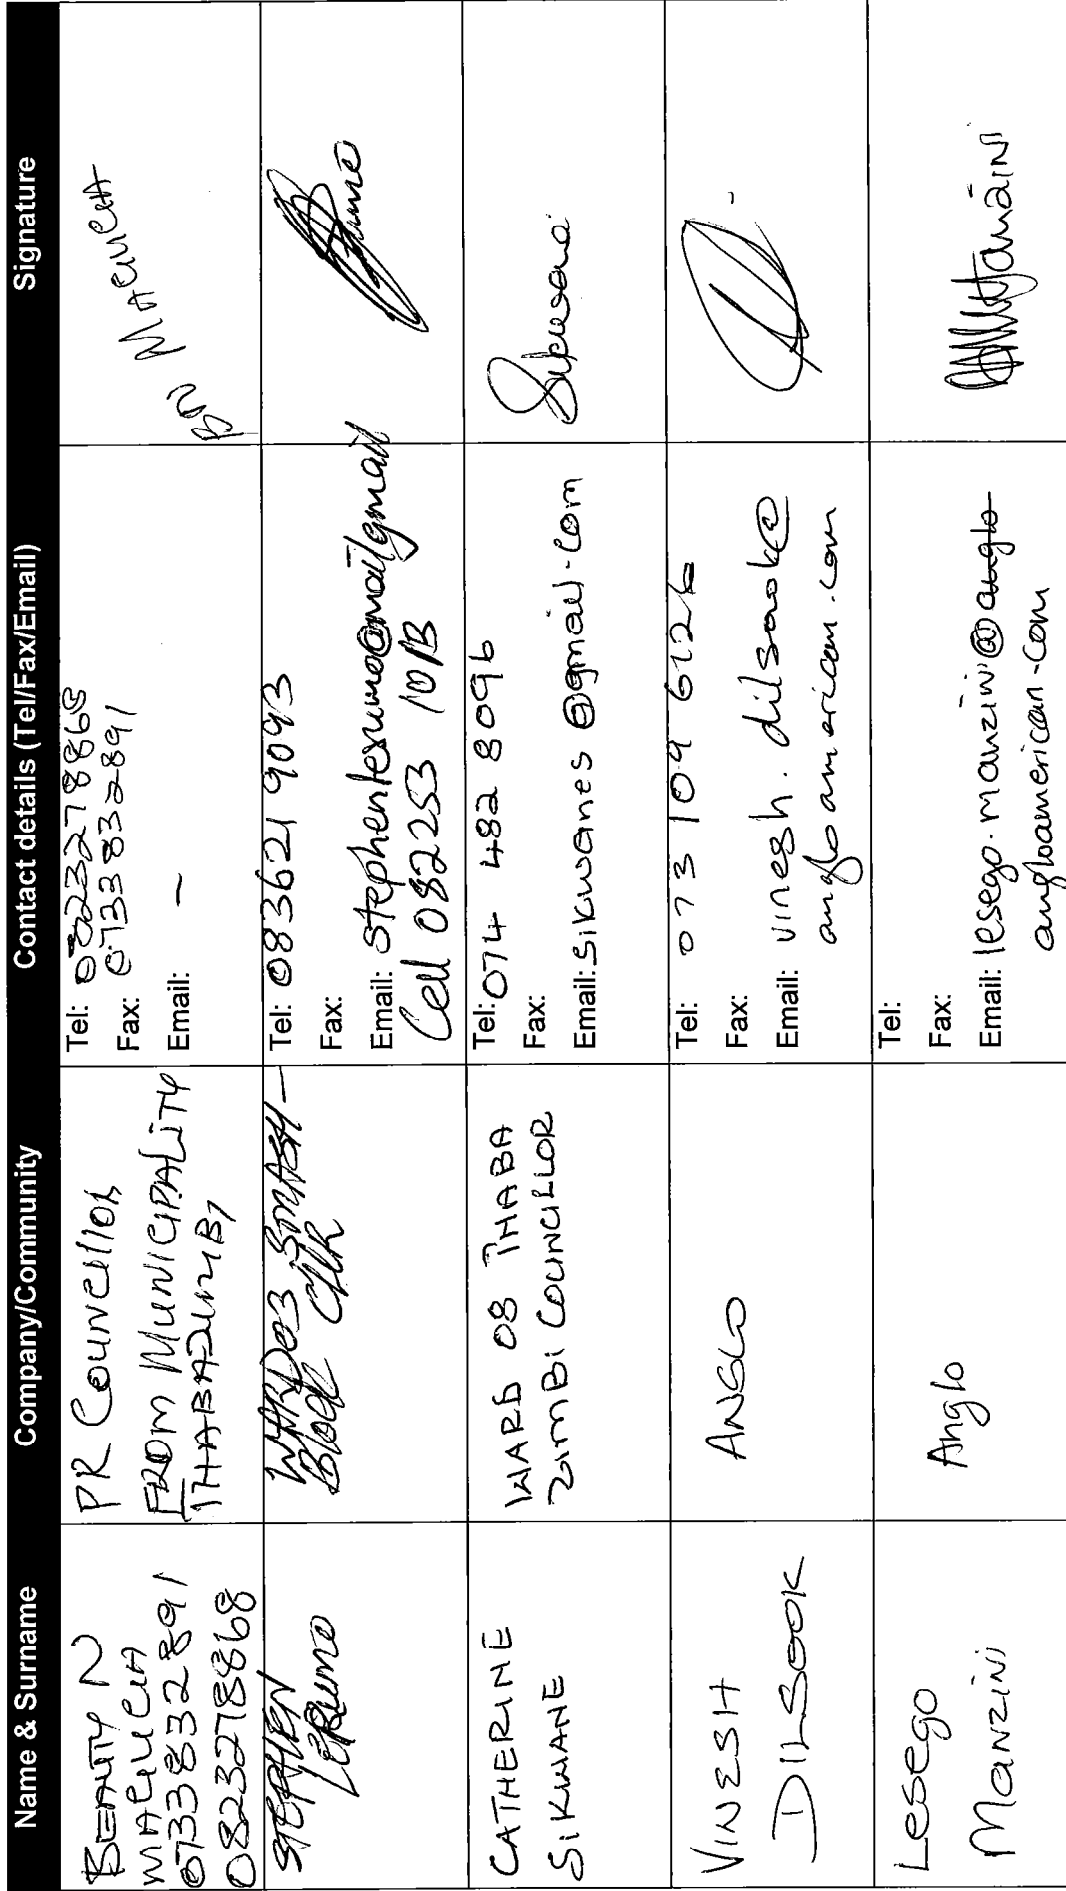 Name & Surname
Company/Community
Contact details (Tel/Fax/Email)
Signature
BEAUTY N
MAGUGA
0733832891
0823278868
PR Councillor
FROM MUNICIPALITY
THABAZIMBI
Tel: 0823278868
0733832891
Fax:
Email: –
BN MAGUGA
STEPHEN
Lesumo
WARD 03 SMASH-
Block Cllr
Tel: 083621 9093
Fax:
Email: Stephenlesumo@mail/gmail
Cell 082253 1013
CATHERINE
SiKWANE
WARD 08 THABA
ZimBi COUNCILLOR
Tel: 074 482 8096
Fax:
Email: Sikwanes@gmail.com
Sikwane
VINESH
DILSOOK
ANGLO
Tel: 073 109 6126
Fax:
Email: vinesh.dilsook@
angloamerican.com
Lesego
Manzini
Anglo
Tel:
Fax:
Email: lesego.manzini@anglo
angloamerican.com